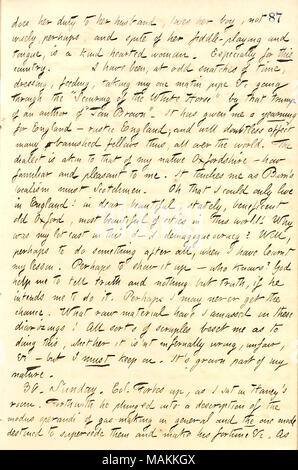 87
does her duty to her husband, loves her boy, not
wisely, perhaps, and spite of her fiddle-playing and
tongue, is a kind hearted woman. Especially for this
country. I have been, at odd snatches of time,
dressing, feeding, taking my one matin pipe &c going
through the "Scouring of the White Horse" by that trump
of an author of "Tom Brown". It has given me a yearning
for England — rustic England, and will doubtless affect
many a banished fellow thus, all over the world. The
dialect is akin to that of my native Oxfordshire — how
familiar and pleasant to me. It touches me as Burns's
localism must Scotchmen. Oh that I could only live
in England! in dear, beautiful, stately, beneficent
old Oxford, most beautiful of cities in this world! Why
was my lot cast in this demagogueocracy? Well,
perhaps to do something after all, when I have learnt
my lesson. Perhaps to show it up — who knows? God
help me to tell truth and nothing but truth, if he
intends me to do it. Perhaps I may never get the
chance. What raw material have I amassed in these
diaries! All sorts of scruples beset me as to
doing this, whether it is n't infernally wrong, unfair,
&c — but I must keep on. It's grown part of my
nature.
30. Sunday. Ed. Forbes up, as I sat in Haney's
room. Forthwith he plunged into a description of the
modus operandi of gas-making in general and the one mode
destined to supersede them and make his fortune &c. As
alamy
Image ID: MAKKGX
www.alamy.com